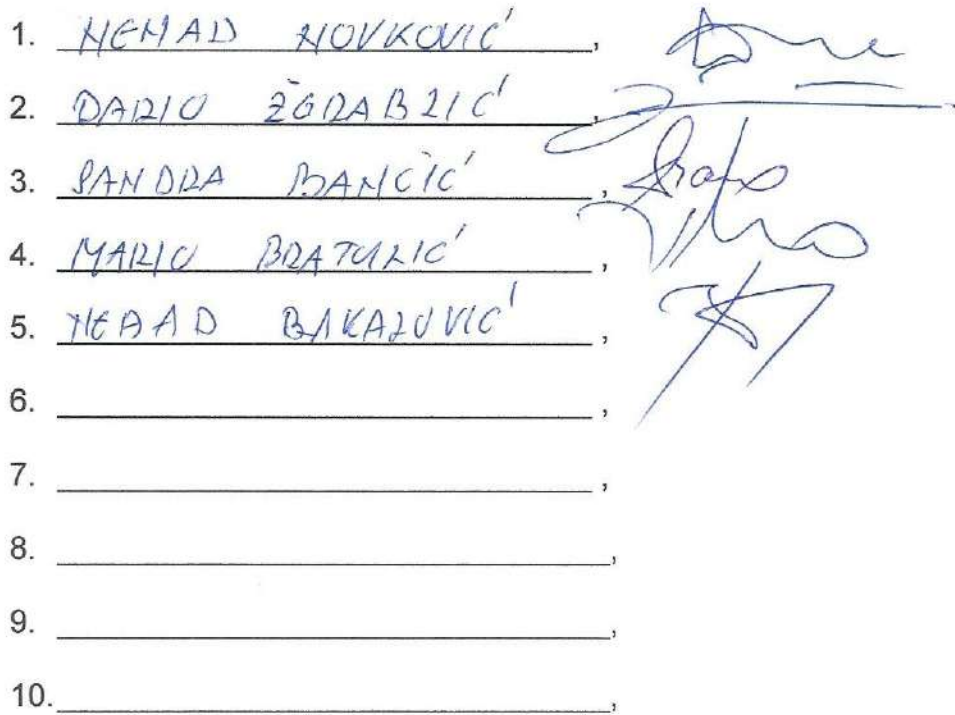 1. NENAD NOVKOVIĆ,
2. DARIO ŽGRABLIĆ,
3. SANDRA BANČIĆ,
4. MARIO BRATULIĆ,
5. NENAD BAKALOVIĆ,
6. ,
7. ,
8. ,
9. ,
10. ,